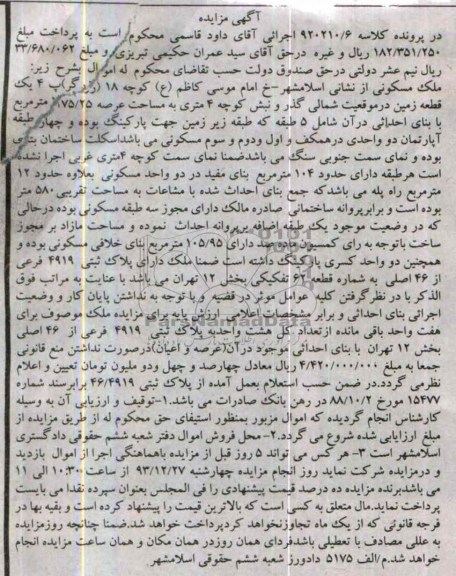 آگهی مزایده
در پرونده کلاسه ۹۲۰۲۱۰/۶ اجرائی آقای داود قاسمی محکوم است به پرداخت مبلغ
۱۸۲/۳۵۱/۲۵۰ ریال و غیره درحق آقای سید عمران حکیمی تبریزی و مبلغ ۳۳/۶۸۰/۰۶۲
ریال نیم عشر دولتی درحق صندوق دولت حسب تقاضای محکوم له اموال بشرح زیر:
ملک مسکونی از نشانی اسلامشهر-خ امام موسی کاظم (ع) کوچه ۱۸ پ ۴ یک
قطعه زمین درموقعیت شمالی گذر و نبش کوچه ۴ متری به مساحت عرصه ۱۷۵/۲۵ مترمربع
با بنای احداثی درآن شامل ۵ طبقه که طبقه زیر زمین جهت پارکینگ بوده و چهار طبقه
آپارتمان دو واحدی درهمکف و اول ودوم و سوم مسکونی می باشداسکلت ساختمان بتنی
بوده و نمای سمت جنوبی سنگ می باشدضمنا نمای سمت کوچه ۴متری غربی اجرا نشده
است هرطبقه دارای حدود ۱۰۴ مترمربع بنای مفید در دو واحد مسکونی بعلاوه حدود ۱۲
مترمربع راه پله می باشدکه جمع بنای احداث شده با مشاعات به مساحت تقریبی۵۸۰ متر
بوده است و برابرپروانه ساختمانی صادره مالک دارای مجوز سه طبقه مسکونی بوده درحالی
که در وضعیت موجود یک طبقه اضافه برپروانه احداث نموده و مساحت مازاد بر مجوز
ساخت باتوجه به رای کمسیون ماده صد دارای ۱۰۵/۹۵ مترمربع بنای خلافی مسکونی بوده و
همچنین دو واحد کسری پارکینگ داشته است ضمنا ملک دارای پلاک ثبتی ۴۹۱۹ فرعی
از ۴۶ اصلی به شماره قطعه ۶۲ تفکیکی بخش ۱۲ تهران می باشد با عنایت به مراتب فوق
الذکر با در نظرگرفتن کلیه عوامل موثر در قضیه و با توجه به نداشتن پایان کار و وضعیت
اجرائی بنای احداثی و برابر مشخصات اعلامی ارزش پایه برای مزایده ملک موصوف برای
هفت واحد باقی مانده ازتعداد کل هشت واحدبه پلاک ثبتی ۴۹۱۹ فرعی از ۴۶ اصلی
بخش ۱۲ تهران با بنای احداثی موجود درآن(عرصه و اعیان)درصورت نداشتن منع قانونی
جمعا به مبلغ ۴/۴۲۰/۰۰۰/۰۰۰ ریال معادل چهارصد و چهل ودو ملیون تومان تعیین و اعلام
نظرمی گردد.در ضمن حسب استعلام بعمل آمده از پلاک ثبتی ۴۶/۴۹۱۹ برابرسند شماره
۱۵۴۷۷ مورخ ۸۸/۱۰/۲ در رهن بانک صادرات می باشد.۱-توقیف و ارزیابی آن به وسیله
کارشناس انجام گردیده که اموال مزبور بمنظور استیفای حق محکوم له از طریق مزایده از
مبلغ ارزایابی شده شروع می گردد.۲-محل فروش اموال دفتر شعبه ششم حقوقی دادگستری
اسلامشهر است ۳- هر کس می تواند ۵ روز قبل از مزایده باهماهنگی اجرا از اموال بازدید
و درمزایده شرکت نماید روز انجام مزایده چهارشنبه ۹۳/۱۲/۲۷ از ساعت ۱۰:۳۰ الی ۱۱
می باشدبرنده مزایده ده درصد قیمت پیشنهادی را فی المجلس بعنوان سپرده نقدا می بایست
پرداخت نماید.مال متعلق به کسی است که بالاترین قیمت را پیشنهاد کرده است و بقیه بها در
فرجه قانونی که از یک ماه تجاوزنخواهد کردپرداخت خواهد شد.ضمنا چنانچه روزمزایده
به عللی مصادف با تعطیلی باشدفردای همان روزدر همان مکان و همان ساعت مزایده انجام
خواهد شد.م/الف ۵۱۷۵ دادورز شعبه ششم حقوقی اسلامشهر